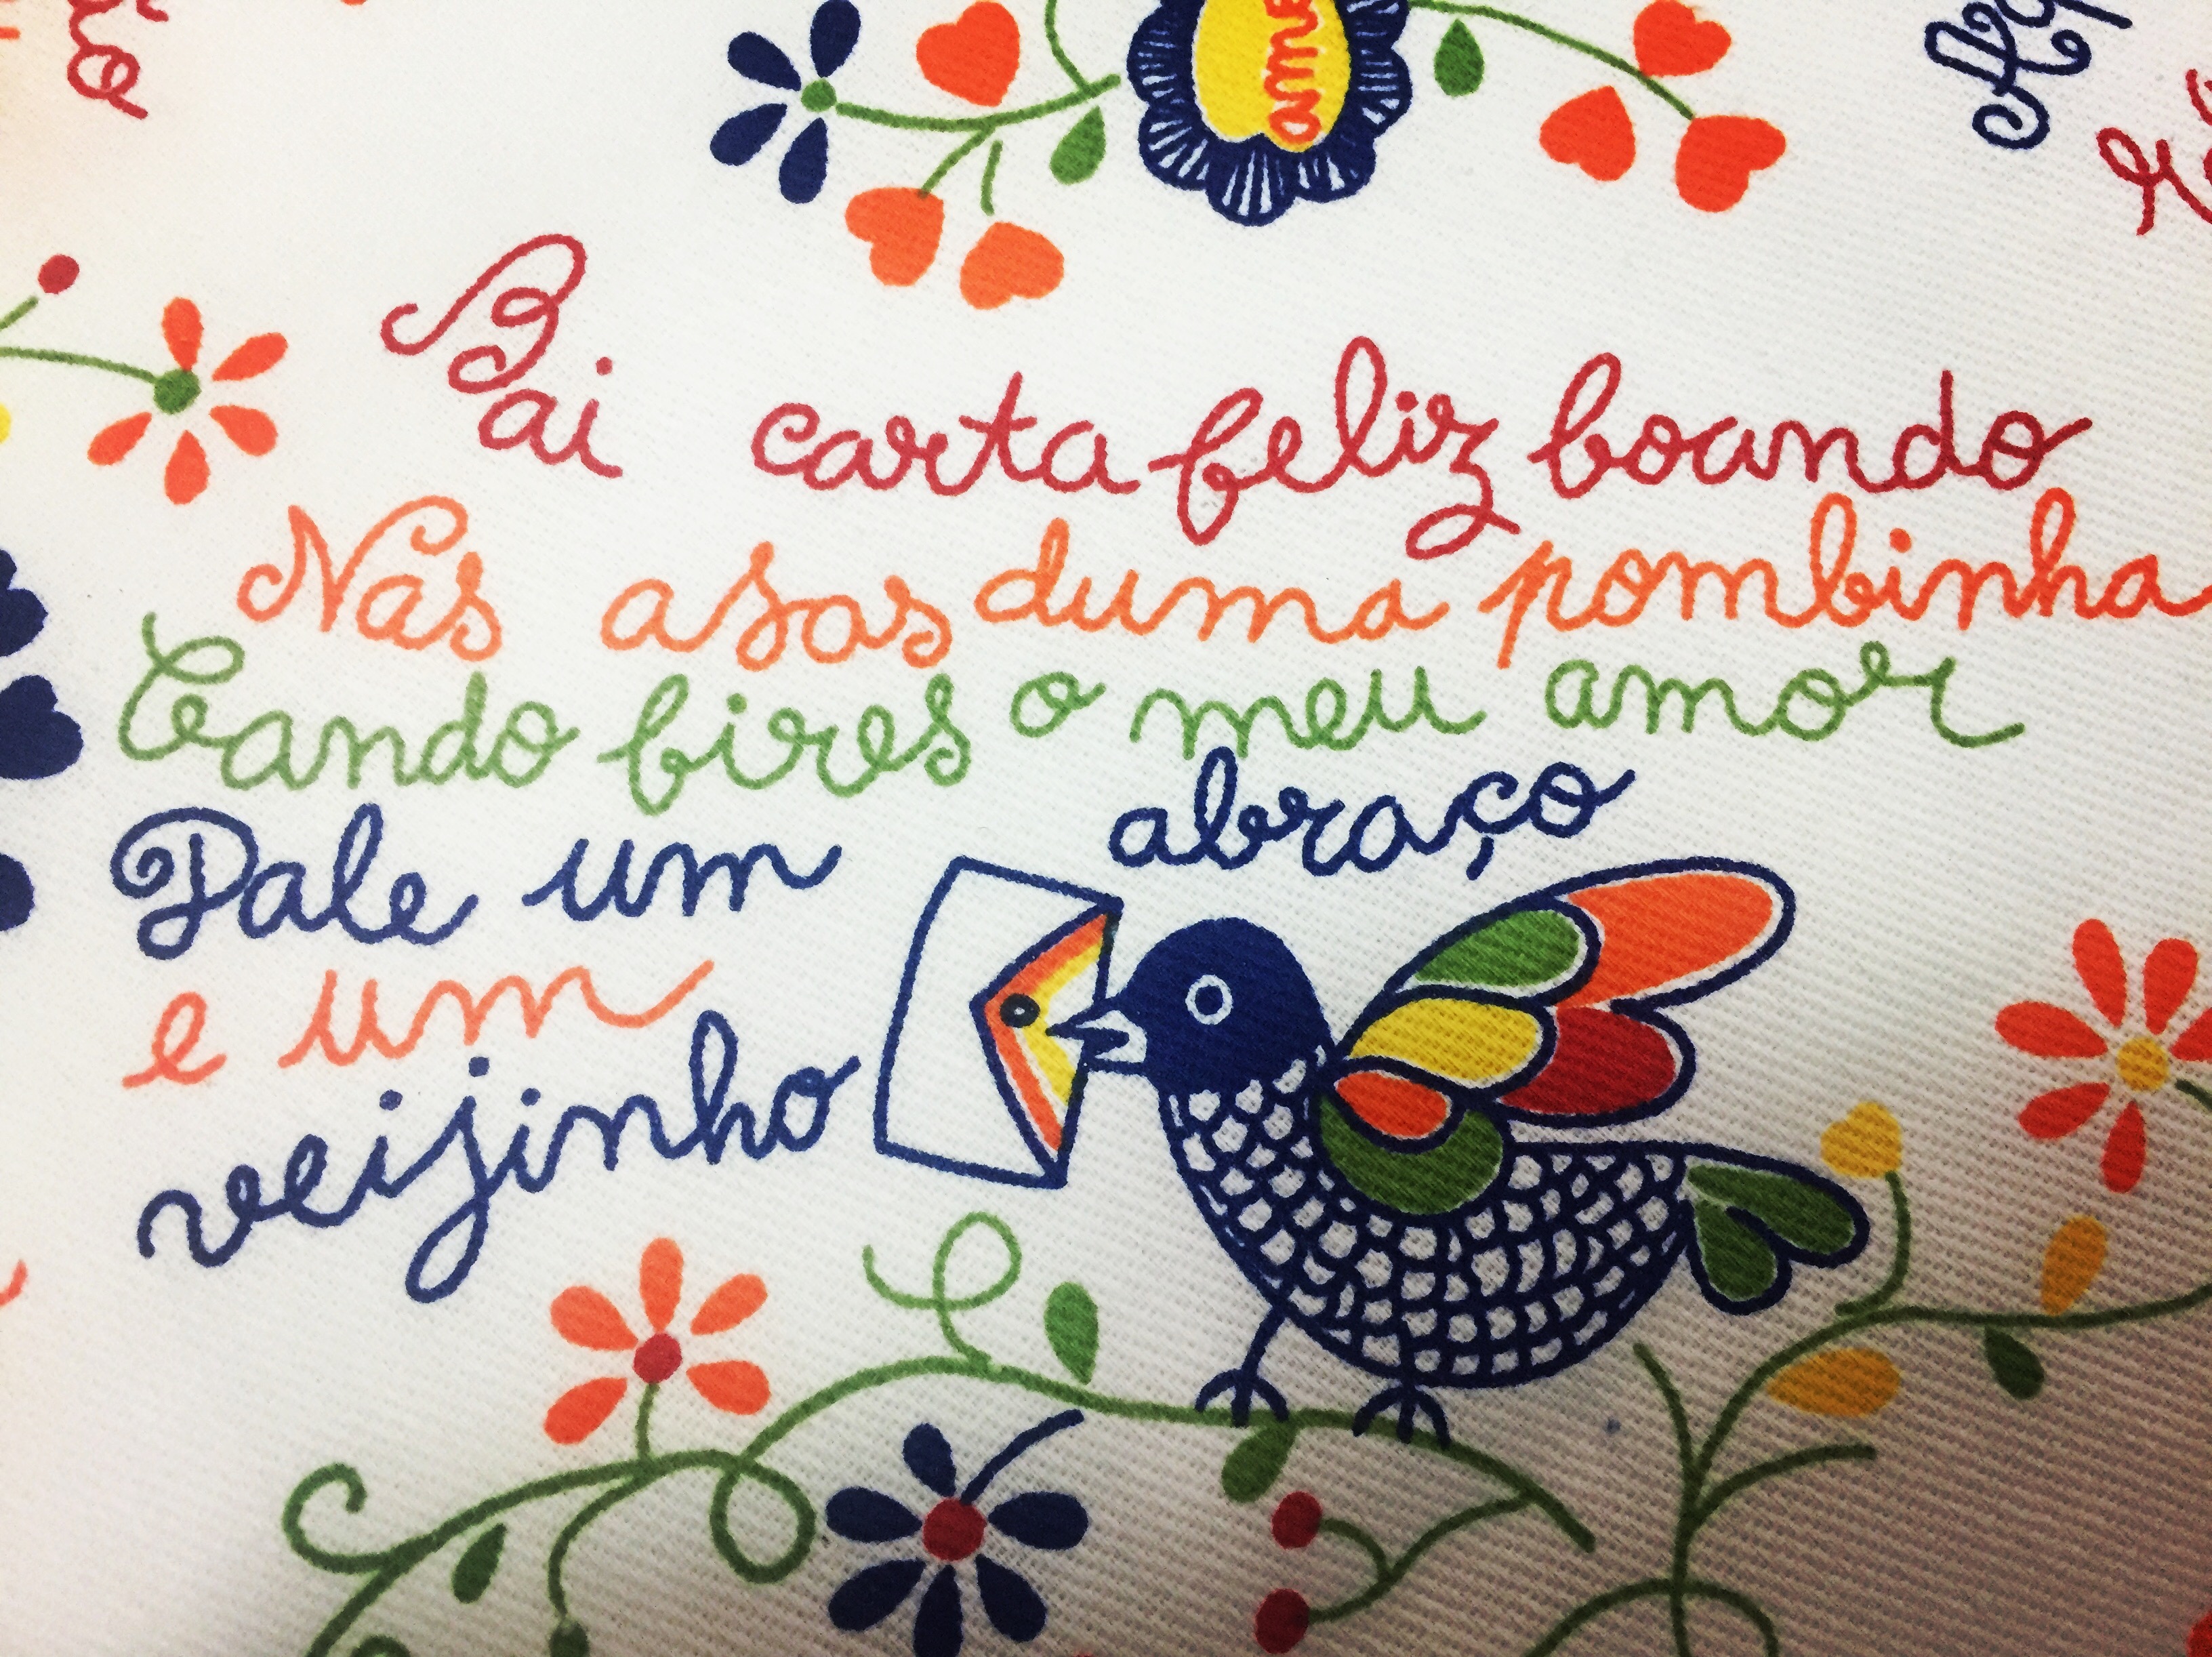 ame
Bai carta feliz boando
Nas asas duma pombinha
Cando bires o meu amor
Dale um abraço
e um
veijinho